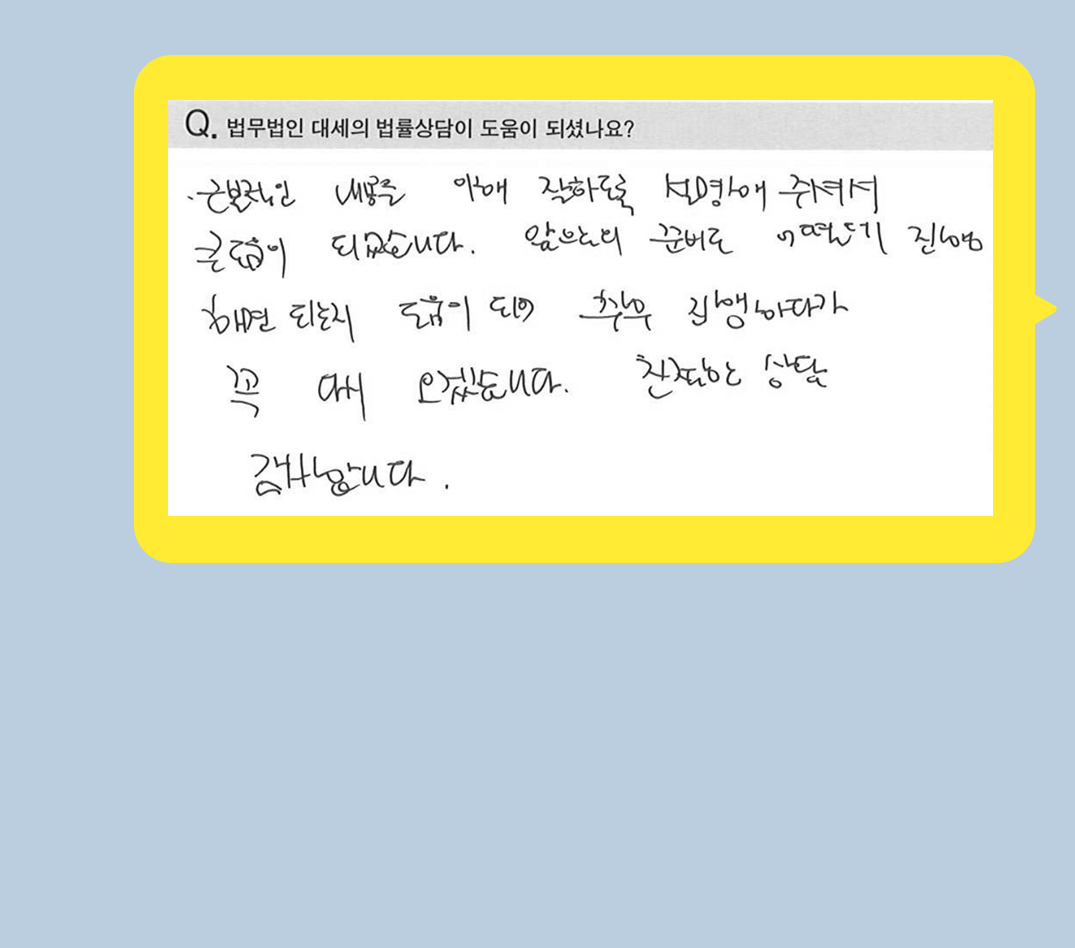 Q. 법무법인 대세의 법률상담이 도움이 되셨나요?
근본적인 내용을 이해 잘하도록 설명해 주셔서
큰 도움이 되었습니다. 앞으로의 준비로 어떤 진행
하면 되는지 도움이 되어 차후 진행하다가
꼭 다시 오겠습니다. 친절한 상담
감사합니다.